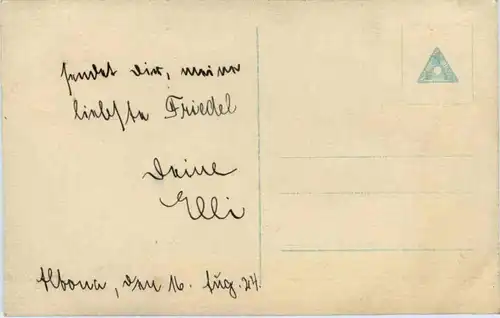 sendet Dir, meine
liebste Friedel
Deine
Elli
Altona, den 16. Aug. 24.